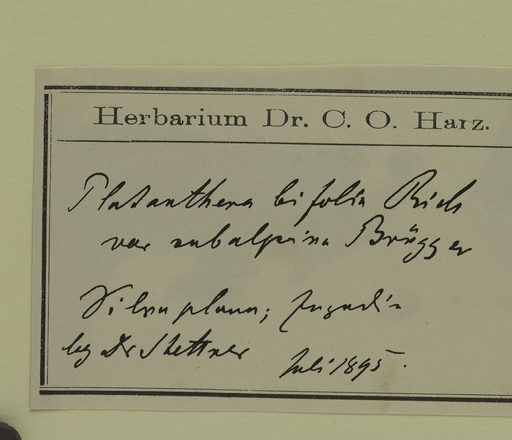 Herbarium Dr. C. O. Harz.
Platanthera bifolia Rich
var subalpina Brügger
Silvaplana; Engadin
leg Dr Stettner Juli 1895.